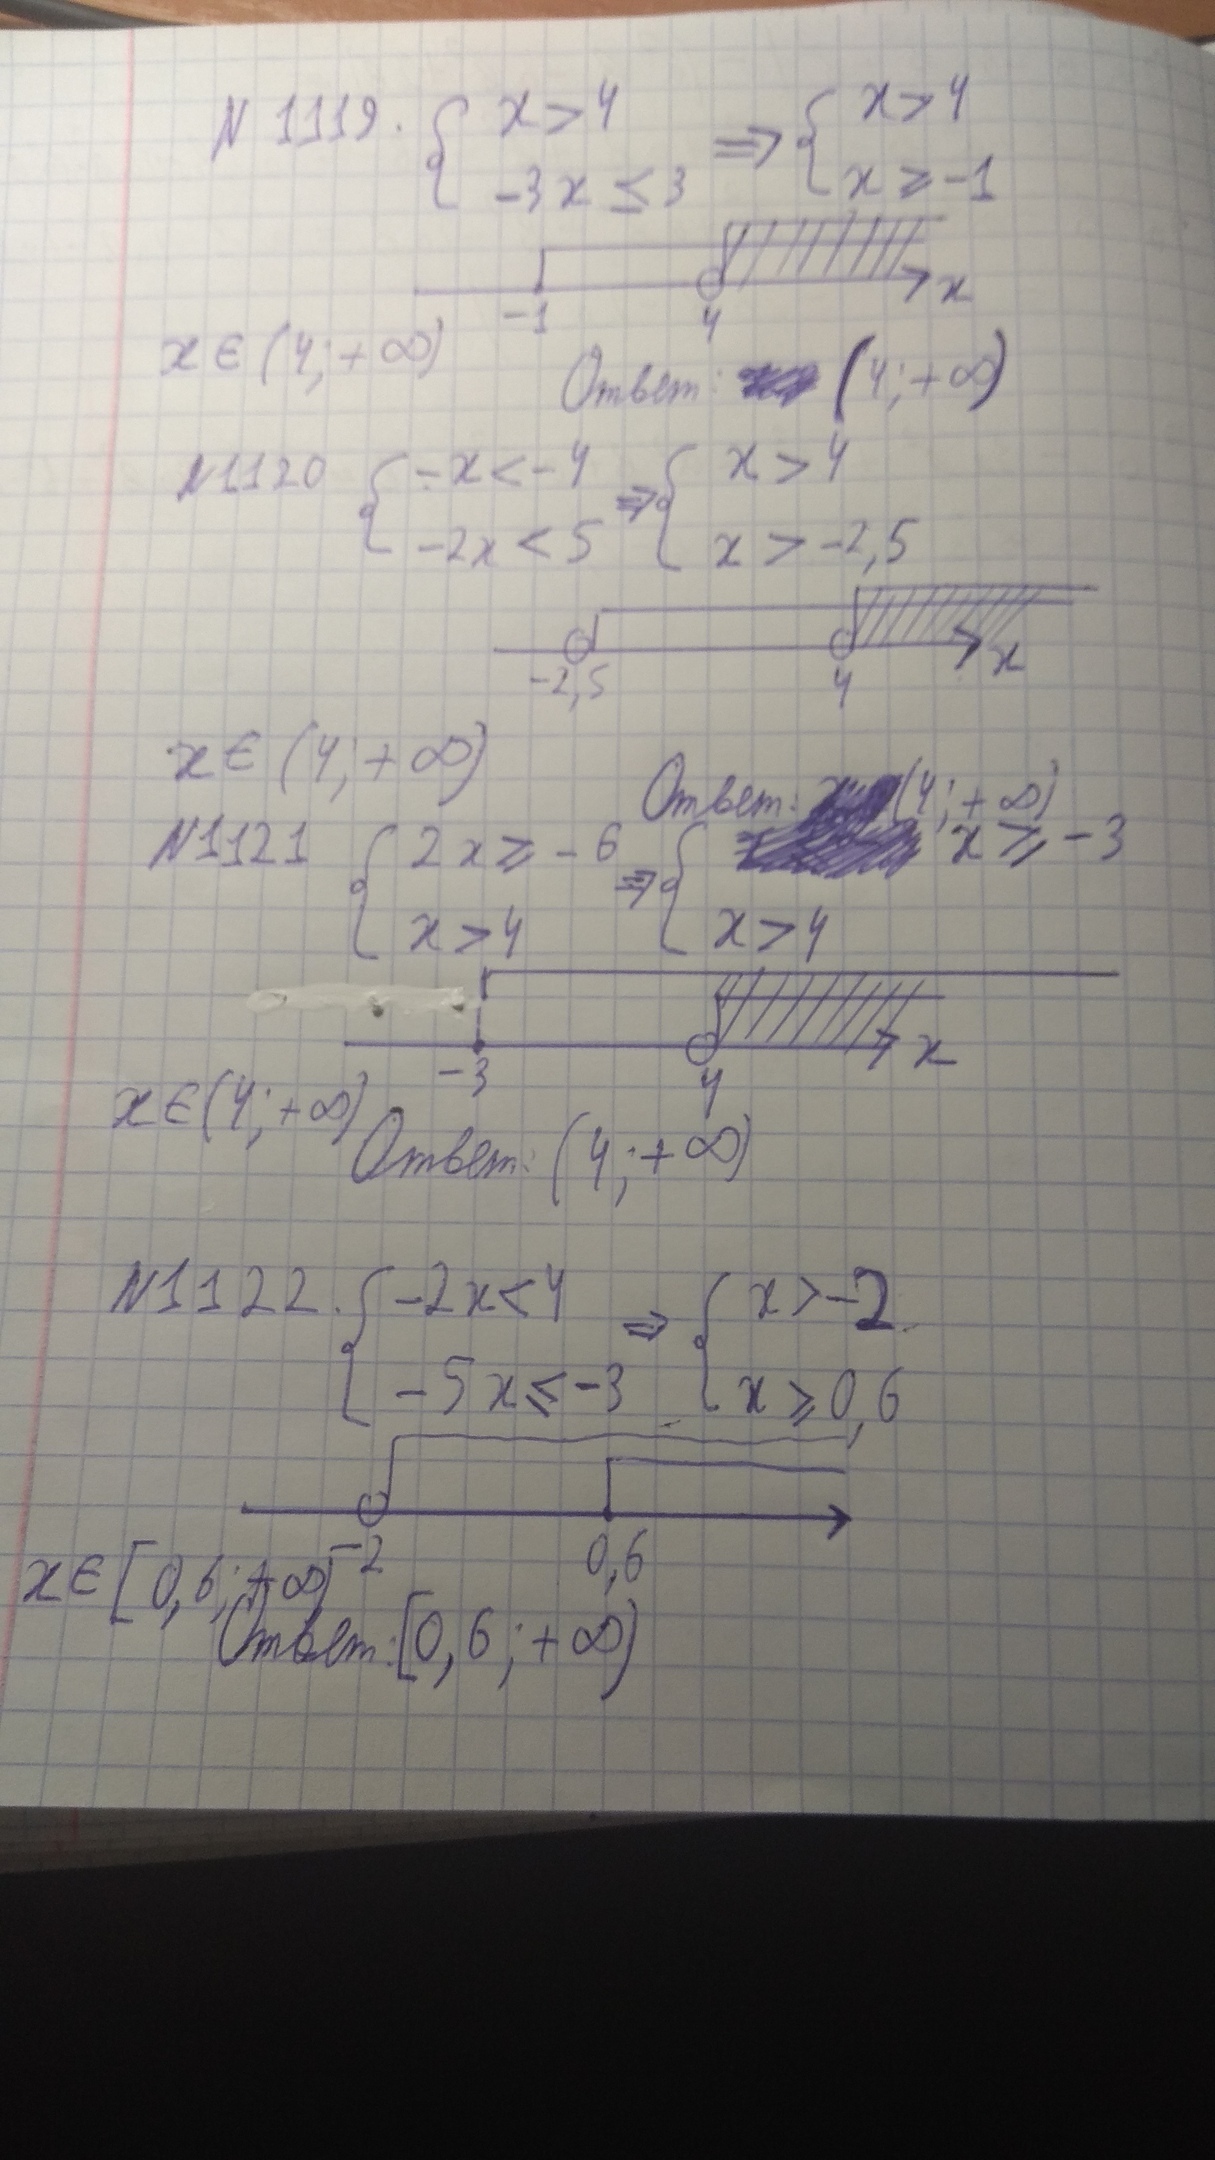 N 1119. { x > 4 ⇒ { x > 4
-3x ≤ 3 x ⩾ -1
-1 4 x
x ∈ (4; +∞) Ответ: (4; +∞)
N1120 { -x < -4 ⇒ { x > 4
-2x < 5 x > -2,5
-2,5 4 x
x ∈ (4; +∞) Ответ: (4; +∞)
N1121 { 2x ⩾ -6 ⇒ { x ⩾ -3
x > 4 x > 4
-3 4 x
x ∈ (4; +∞) Ответ: (4; +∞)
N1122. { -2x < 4 ⇒ { x > -2
-5x ⩽ -3 x ⩾ 0,6
-2 0,6
x ∈ [0,6; +∞)
Ответ: [0,6; +∞)